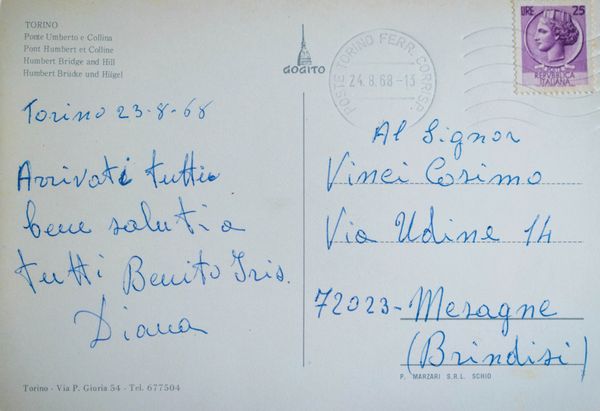 TORINO
Ponte Umberto e Collina
Pont Humbert et Colline
Humbert Bridge and Hill
Humbert Brücke und Hügel
GOGITO
POSTE TORINO FERR. CORRISP.
24.8.68-13
LIRE 25
REPVBBLICA
ITALIANA
Torino 23-8-68
Arrivati tutti
bene saluti a
tutti Benito Iris.
Diana
Al Signor
Vinci Cosimo
Via Udine 14
72023- Mesagne
(Brindisi)
P. MARZARI S.R.L. SCHIO
Torino - Via P. Giuria 54 - Tel. 677504